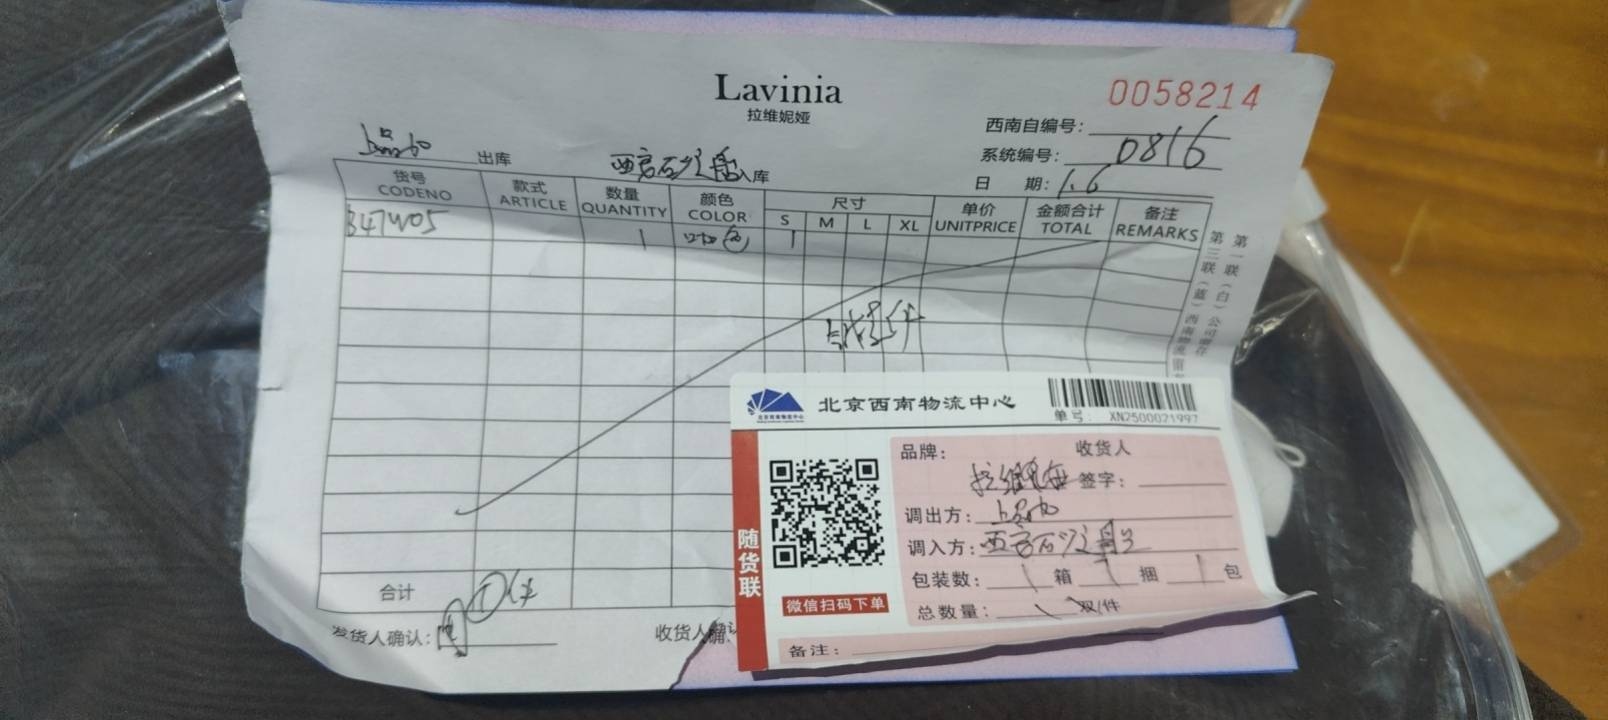 Lavinia
拉维妮娅
0058214
西南自编号:
系统编号: 0816
日 期: 1.6
出库
入库
货号 款式 数量 颜色 尺寸 单价 金额合计 备注
CODENO ARTICLE QUANTITY COLOR S M L XL UNITPRICE TOTAL REMARKS
B47W05 1 1
第一联(白)公司留存
第三联(蓝)西南物流留
合计 ①件
发货人确认:
收货人确认
北京西南物流中心
单号: XN2500021997
品牌: 拉维妮娅
收货人
签字:
调出方:
调入方:
包装数: 1 箱 捆 1 包
总数量: 1 双/件
备注:
随货联
微信扫码下单